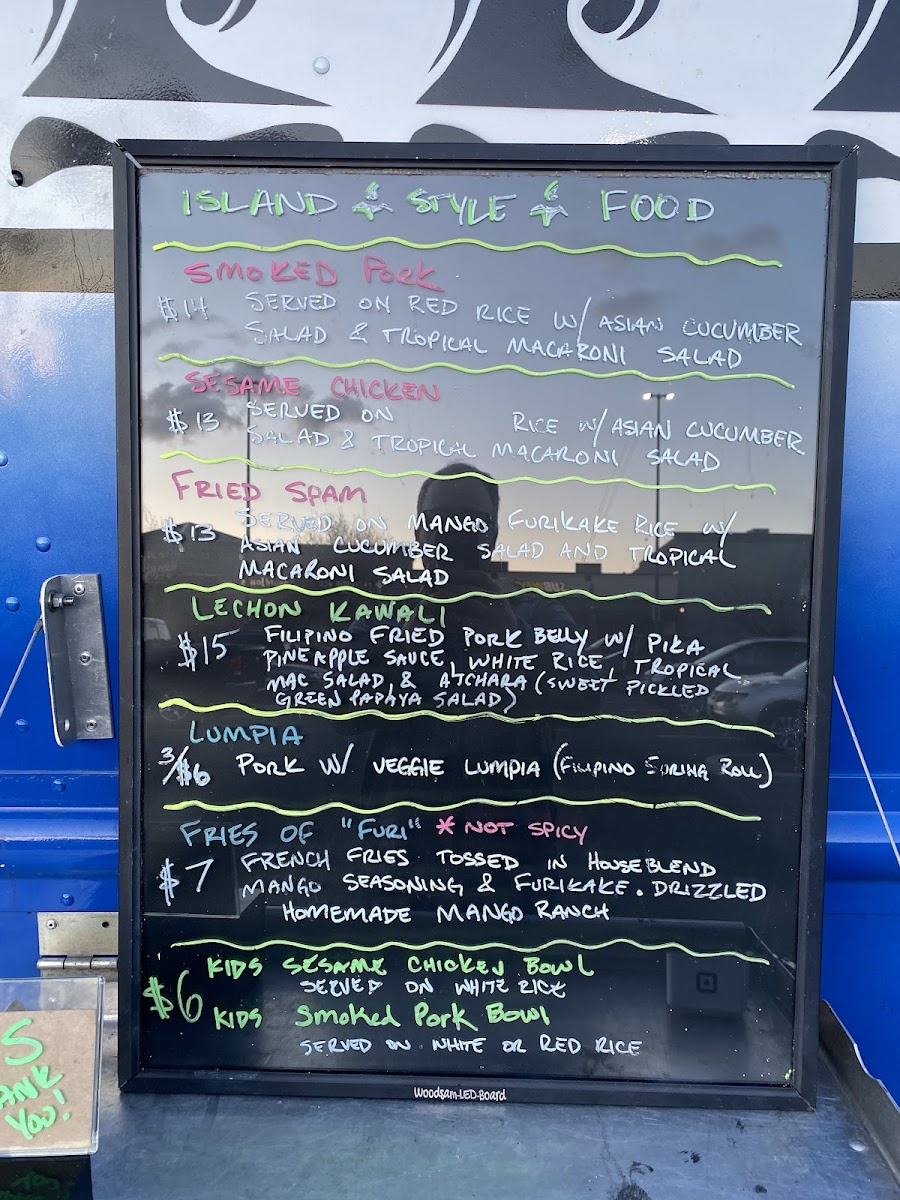 ISLAND STYLE FOOD
SMOKED PORK
$14 SERVED ON RED RICE W/ ASIAN CUCUMBER
SALAD & TROPICAL MACARONI SALAD
SESAME CHICKEN
$13 SERVED ON RICE W/ ASIAN CUCUMBER
SALAD & TROPICAL MACARONI SALAD
FRIED SPAM
$13 SERVED ON MANGO FURIKAKE RICE W/
ASIAN CUCUMBER SALAD AND TROPICAL
MACARONI SALAD
LECHON KAWALI
$15 FILIPINO FRIED PORK BELLY W/ PIKA
PINEAPPLE SAUCE, WHITE RICE, TROPICAL
MAC SALAD, & ATCHARA (SWEET PICKLED
GREEN PAPAYA SALAD)
LUMPIA
3/$6 PORK W/ VEGGIE LUMPIA (FILIPINO SPRING ROLL)
FRIES OF "FURI" * NOT SPICY
$7 FRENCH FRIES TOSSED IN HOUSEBLEND
MANGO SEASONING & FURIKAKE. DRIZZLED
HOMEMADE MANGO RANCH
$6 KIDS SESAME CHICKEN BOWL
SERVED ON WHITE RICE
KIDS Smoked Pork Bowl
SERVED ON WHITE OR RED RICE
Woodsam-LED-Board
S
ANK
YOU!
SUBWAY